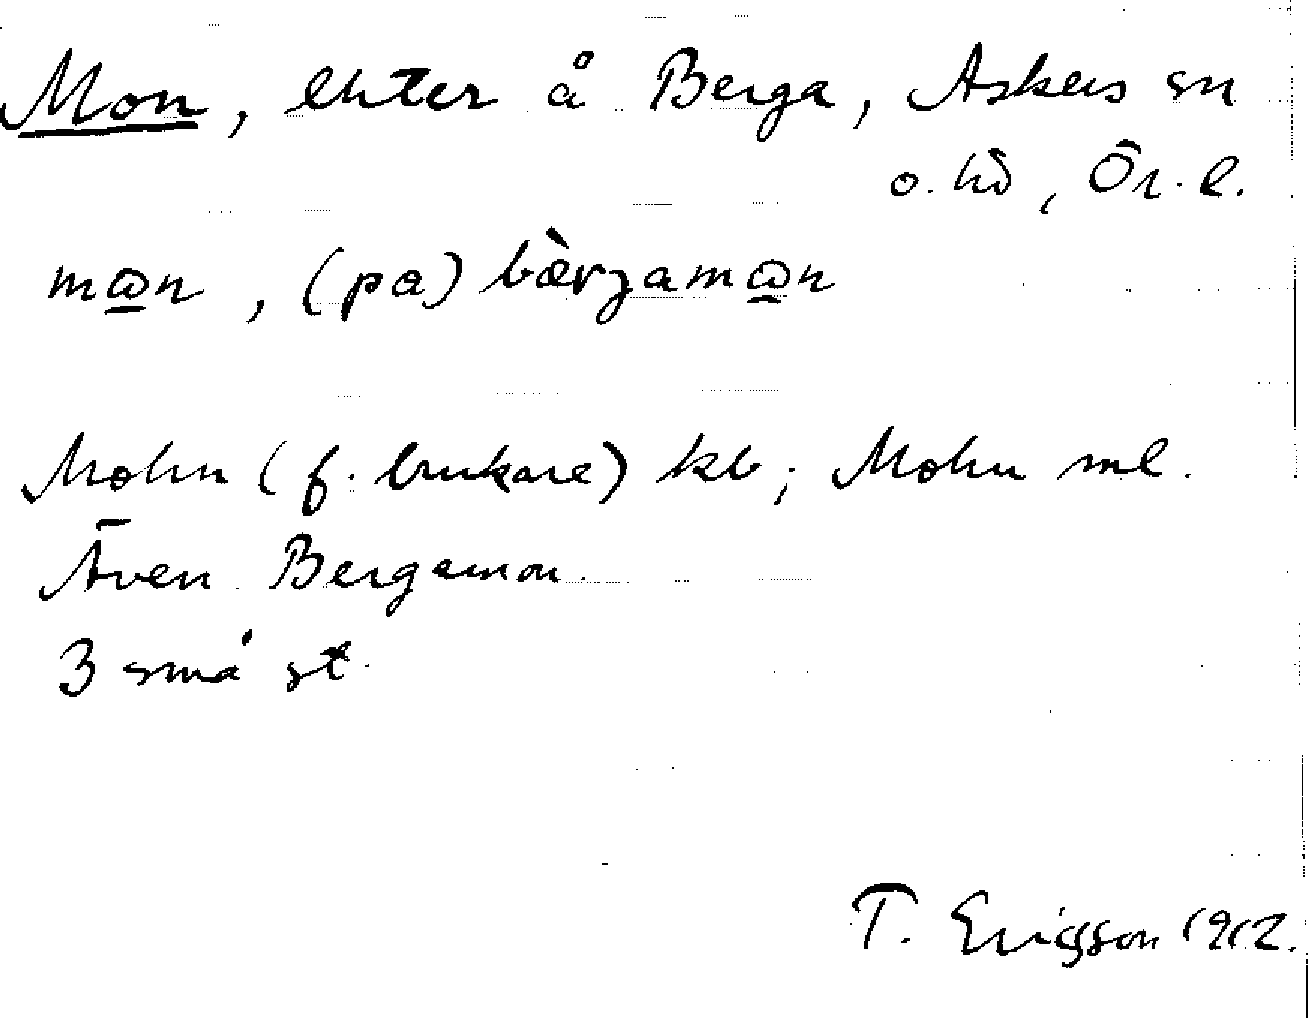 Mon, lhter å Berga, Askers sn
o. hd, Ör. l.
mɷn, (pa) bæ̀rjamɷn
Mohn (f. brukare) kb; Mohn ml.
Även Bergamon.
3 små st.
T. Ericsson 1912.